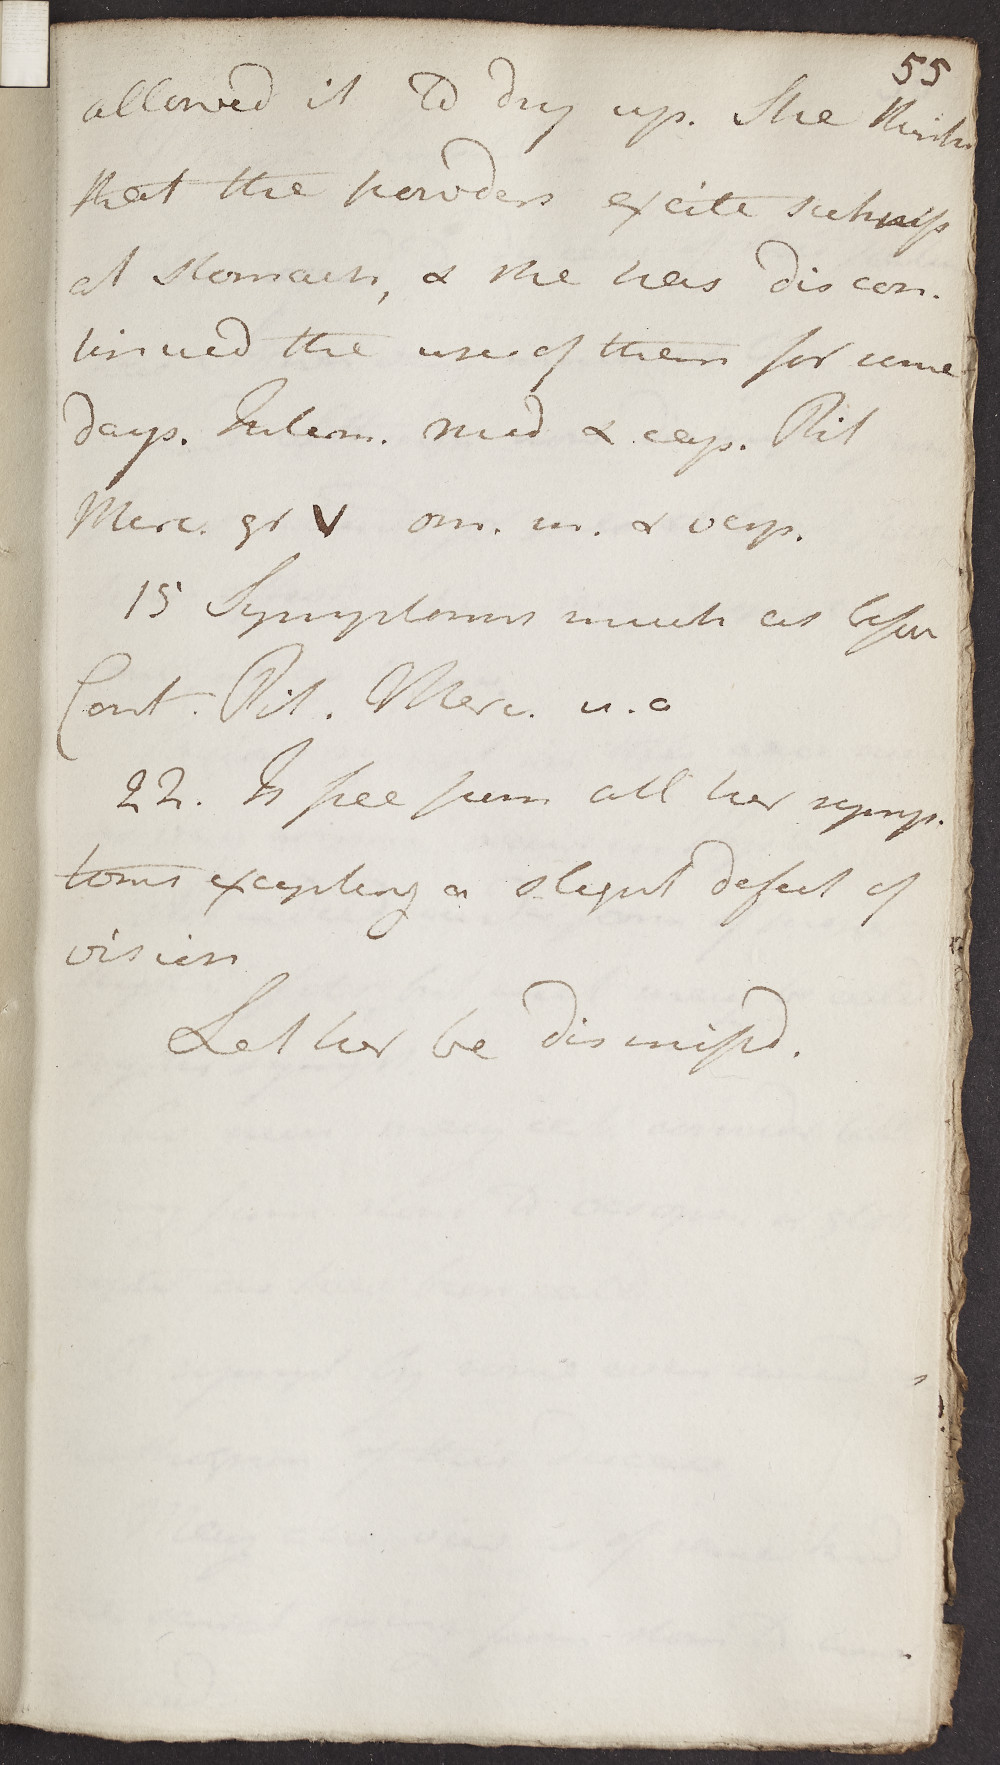 55
allowed it to dry up. She thinks
that the powders excite sickness
at stomach, & she has discon-
tinued the use of them for some
days. Interm. med & cap. Pil
Merc. gr V om. m. & vesp.
15 Symptoms much as before
Cont. Pil. Merc. u.a
22. Is free from all her symp-
toms excepting a slight defect of
vision
Let her be dismissd.